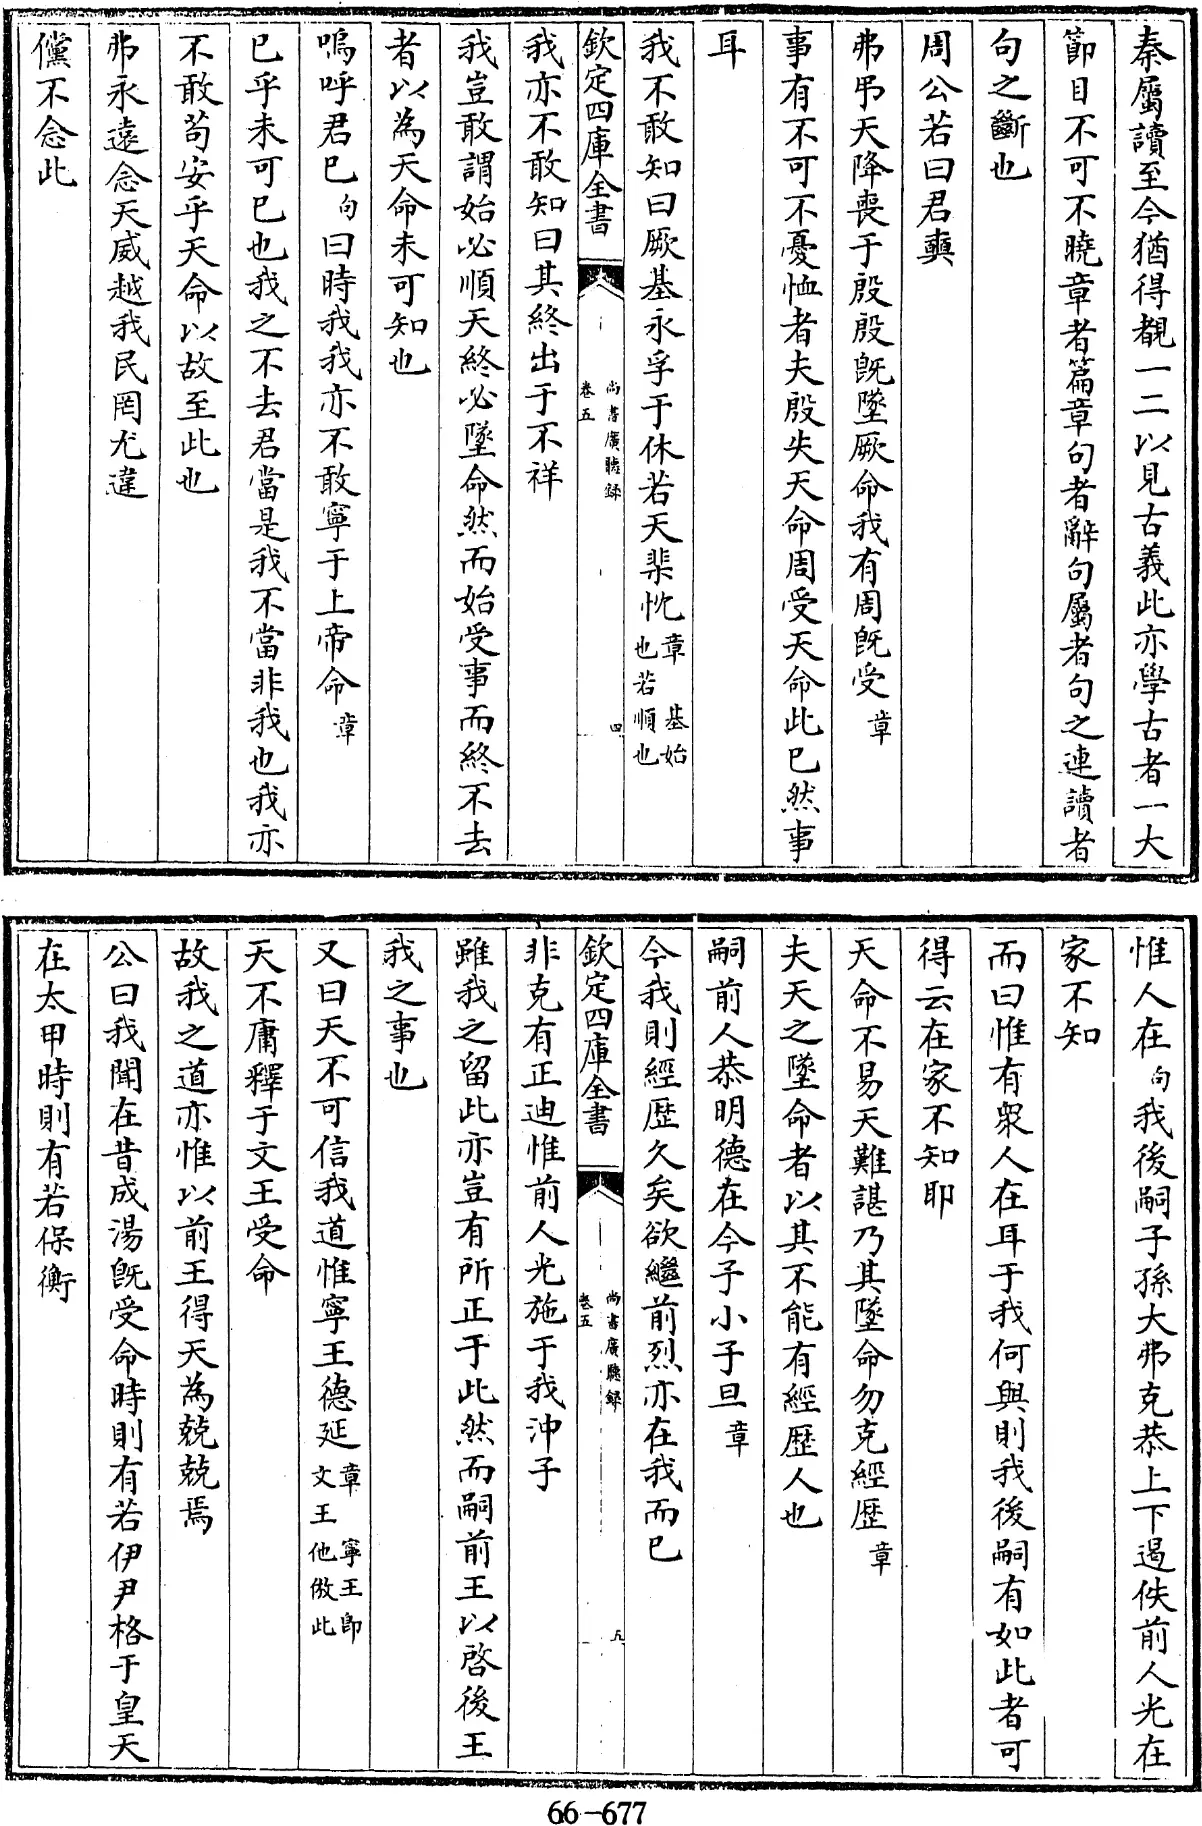 秦屬讀至今猶得覩一二以見古義此亦學古者一大
節目不可不曉章者篇章句者辭句屬者句之連讀者
句之斷也
周公若曰君奭
弗弔天降喪于殷殷旣墜厥命我有周旣受章
事有不可不憂恤者夫殷失天命周受天命此已然事
耳
我不敢知曰厥基永孚于休若天棐忱章 基始也若順也
欽定四庫全書
尚書廣聽録
卷五
四
我亦不敢知曰其終出于不祥
我豈敢謂始必順天終必墜命然而始受事而終不去
者以為天命未可知也
嗚呼君已句曰時我我亦不敢寧于上帝命章
已乎未可已也我之不去君當是我不當非我也我亦
不敢苟安乎天命以故至此也
弗永遠念天威越我民罔尤違
儻不念此
惟人在句我後嗣子孫大弗克恭上下遏佚前人光在
家不知
而曰惟有衆人在耳于我何與則我後嗣有如此者可
得云在家不知耶
天命不易天難諶乃其墜命勿克經歴章
夫天之墜命者以其不能有經歴人也
嗣前人恭明德在今予小子旦章
今我則經歴久矣欲繼前烈亦在我而已
欽定四庫全書
尚書廣聽録
卷五
五
非克有正迪惟前人光施于我沖子
雖我之留此亦豈有所正于此然而嗣前王以啓後王
我之事也
又曰天不可信我道惟寧王德延章 寧王即文王他倣此
天不庸釋于文王受命
故我之道亦惟以前王得天為兢兢焉
公曰我聞在昔成湯旣受命時則有若伊尹格于皇天
在太甲時則有若保衡
66-677